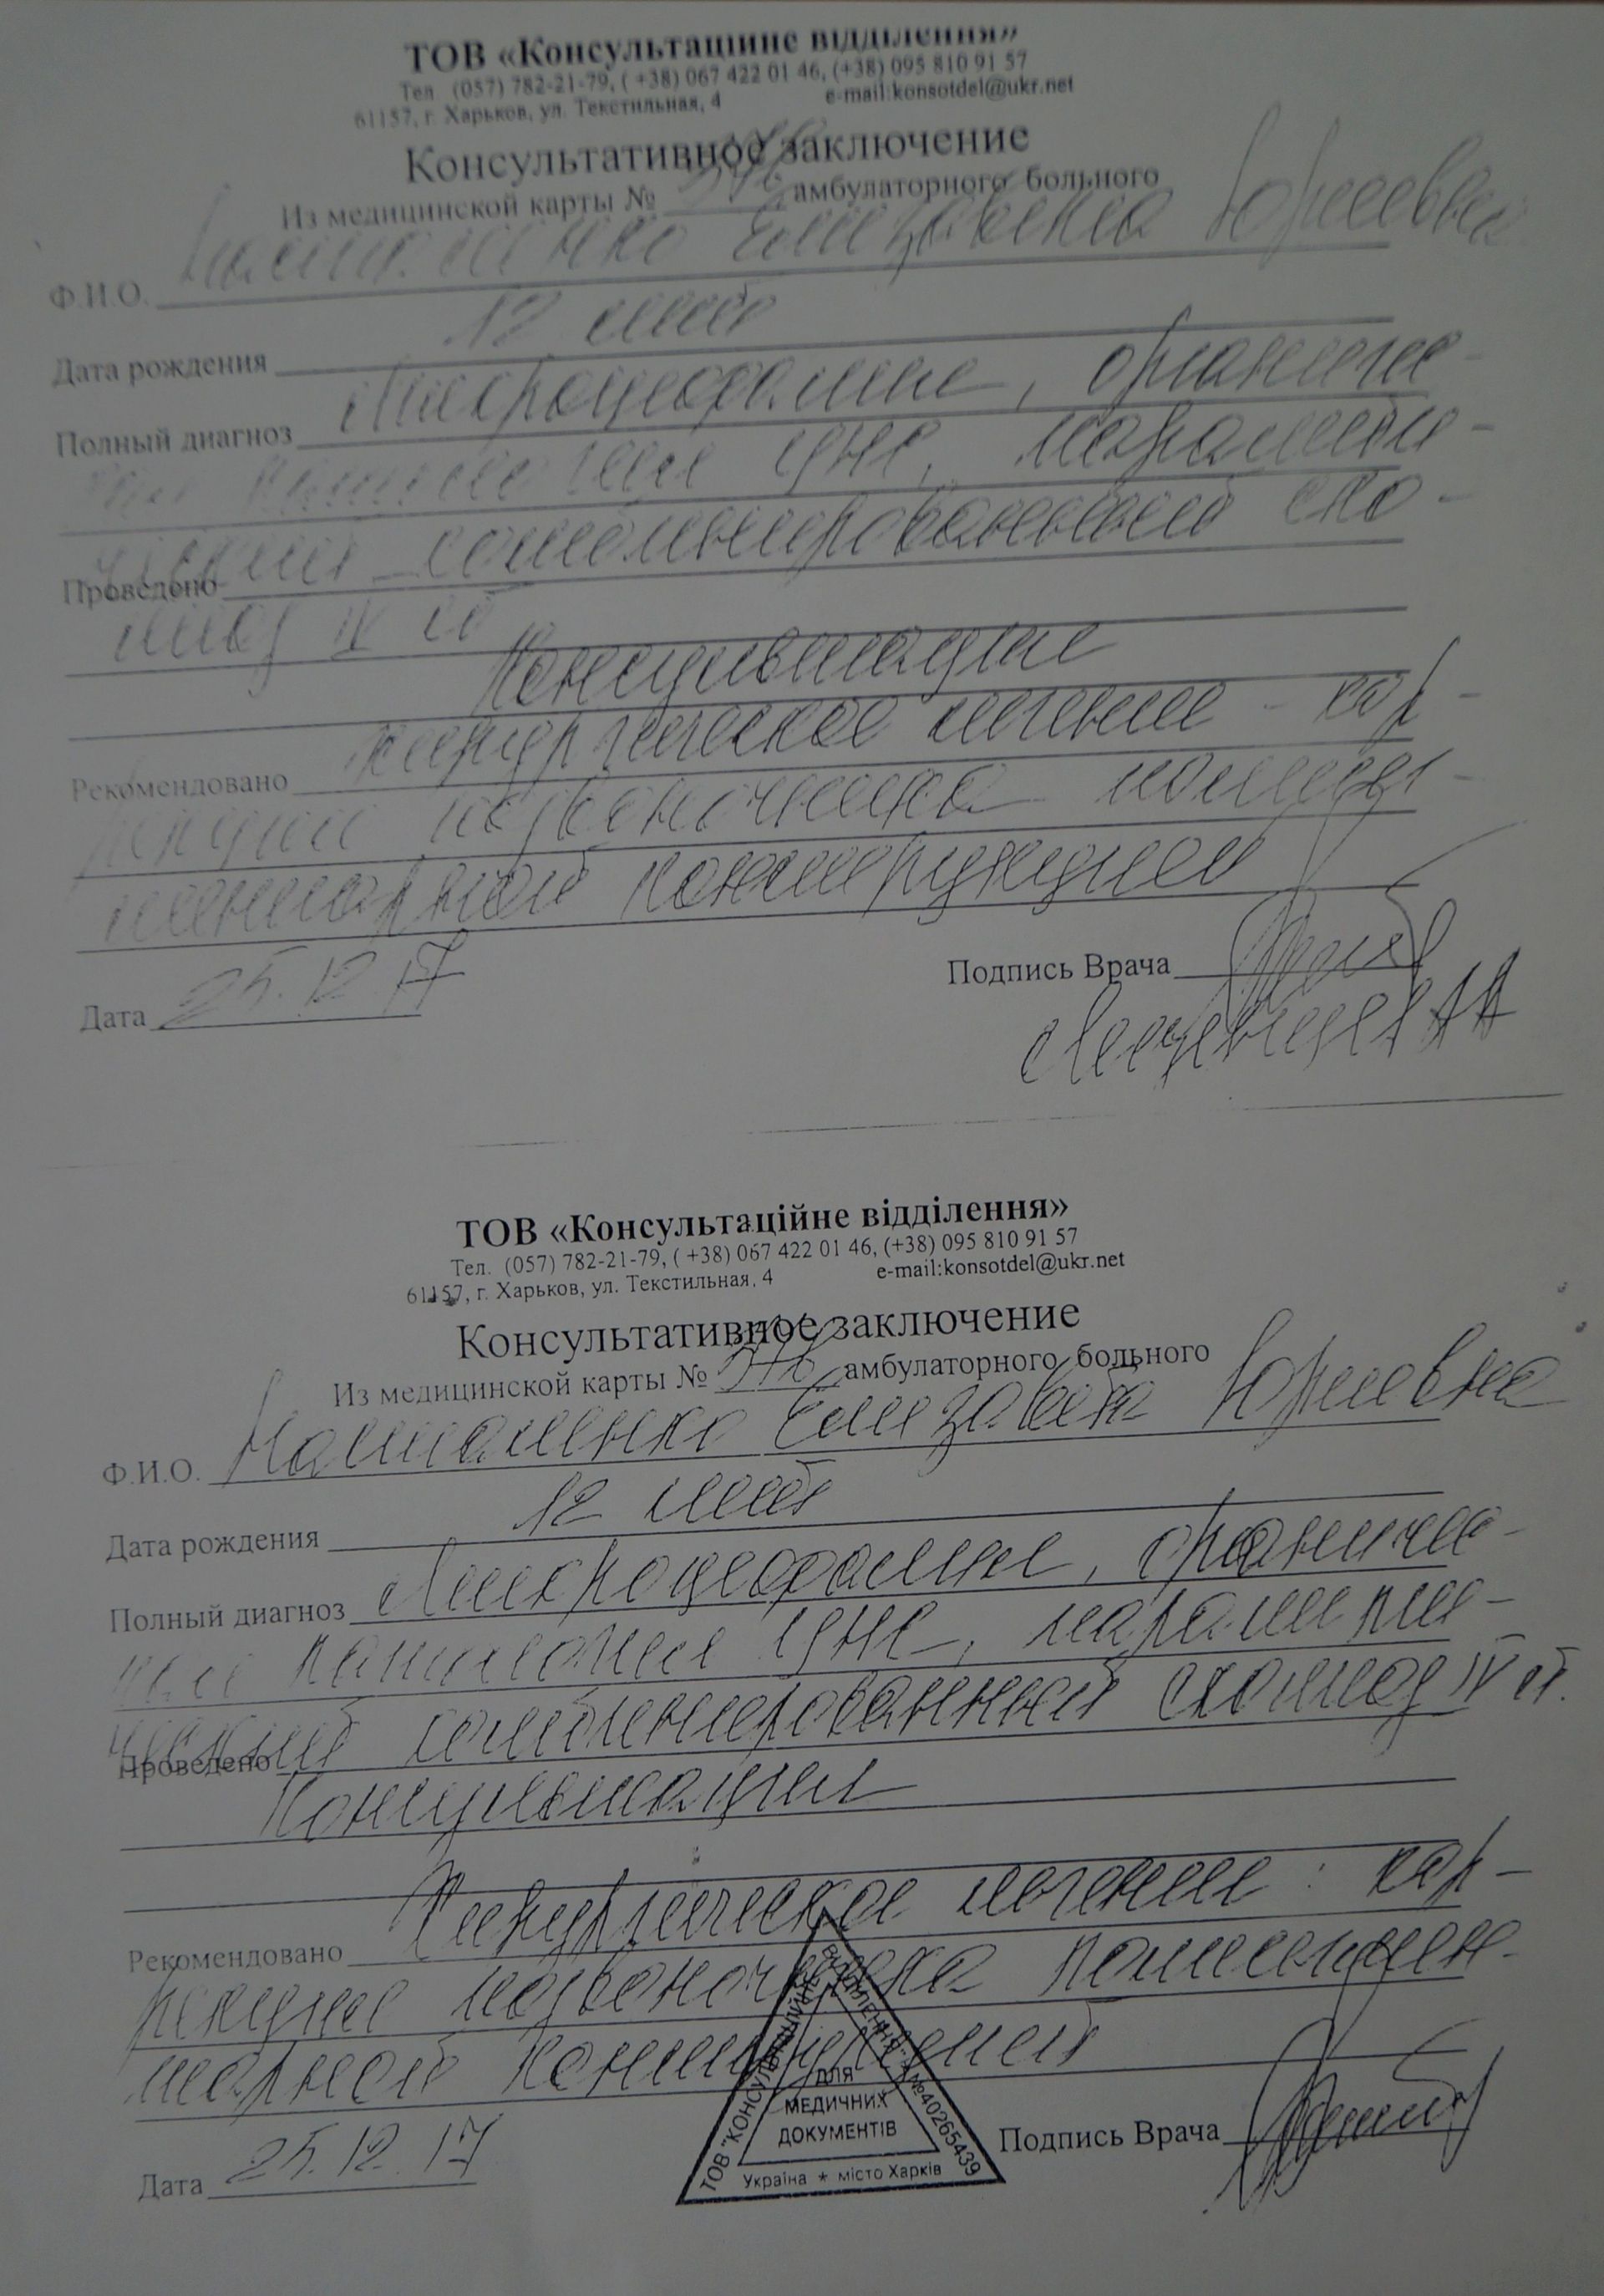 ТОВ «Консультаційне відділення»
Тел. (057) 782-21-79, ( +38) 067 422 01 46, (+38) 095 810 91 57
61157, г. Харьков, ул. Текстильная, 4 e-mail:konsotdel@ukr.net
Консультативное заключение
Из медицинской карты № амбулаторного больного
Ф.И.О. Елизавета Юрьевна
Дата рождения 12 лет
Полный диагноз Микроцефалия, органиче-
ская патология ЦНС, паралити-
ческий комбинированный ско-
Проведено
лиоз IV ст
Консультация
Рекомендовано хирургическое лечение - кор-
рекция позвоночника полисег-
ментарной конструкцией
Дата 25.12.17
Подпись Врача
ТОВ «Консультаційне відділення»
Тел. (057) 782-21-79, ( +38) 067 422 01 46, (+38) 095 810 91 57
61157, г. Харьков, ул. Текстильная, 4 e-mail:konsotdel@ukr.net
Консультативное заключение
Из медицинской карты № амбулаторного больного
Ф.И.О. Елизавета Юрьевна
Дата рождения 12 лет
Полный диагноз Микроцефалия, органиче-
ская патология ЦНС, паралити-
ческий комбинированный сколиоз IV ст.
Проведено
Консультация
Рекомендовано Хирургическое лечение: кор-
рекция позвоночника полисегмен-
тарной конструкцией
Дата 25.12.17
Подпись Врача
ТОВ "КОНСУЛЬТАЦІЙНЕ ВІДДІЛЕННЯ" *№40265439
ДЛЯ
МЕДИЧНИХ
ДОКУМЕНТІВ
Україна * місто Харків